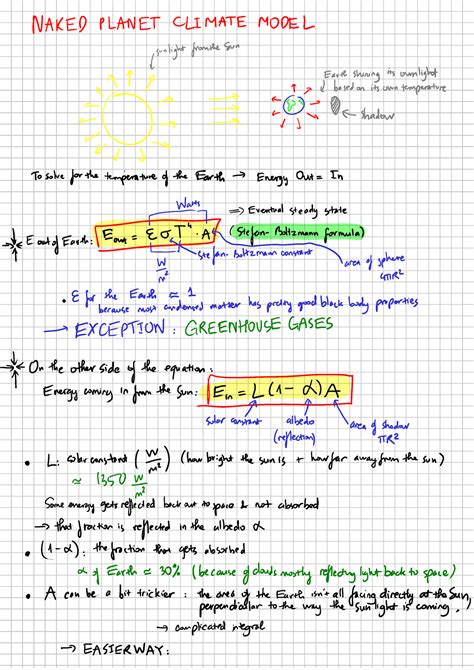 NAKED PLANET CLIMATE MODEL
sunlight from the Sun
Earth shining its own light
based on its own temperature
shadow
To solve for the temperature of the Earth → Energy Out = In
Watts
⇒ Eventual steady state
E out of Earth: E out = ε σ T⁴ · A (Stefan-Boltzmann formula)
Stefan-Boltzmann constant
W/m²
area of sphere
4πR²
• ε for the Earth ≃ 1
because most condensed matter has pretty good black body properties
→ EXCEPTION: GREENHOUSE GASES
On the other side of the equation:
Energy coming in from the Sun: E in = L (1 - α) A
solar constant
albedo
(reflection)
area of shadow
πR²
• L: solar constant (W/m²) (how bright the sun is + how far away from the sun)
≃ 1350 W/m²
Some energy gets reflected back out to space & not absorbed
→ that fraction is reflected in the albedo α
• (1-α): the fraction that gets absorbed
α of Earth ≃ 30% (because of clouds mostly reflecting light back to space)
• A can be a bit trickier: the area of the Earth isn't all facing directly at the Sun,
perpendicular to the way the sunlight is coming,
→ complicated integral
→ EASIER WAY: